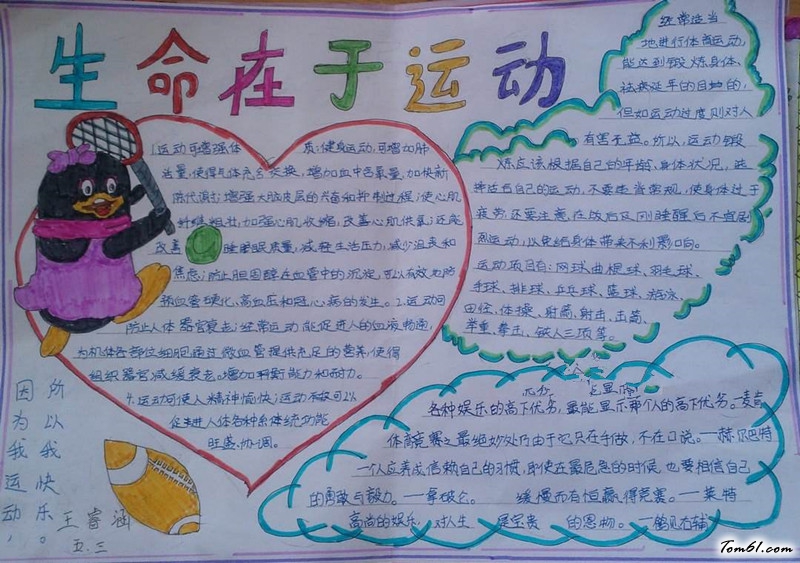 生命在于运动
1运动可增强体质:健身运动,可增加肺
活量,使得气体充分交换,增加血中含氧量,加快新
陈代谢;增强大脑皮层的兴奋和抑制过程;使心肌
纤维粗壮,加强心肌收缩,改善心肌供氧;还能
改善睡眠质量,减轻生活压力,减少沮丧和
焦虑;防止胆固醇在血管中的沉淀,可以有效地防
预血管硬化、高血压和冠心病的发生。2.运动可
防止人体器官衰老:经常运动能促进人的血液畅通,
为机体各部位细胞通过微血管提供充足的营养,使得
组织器官减缓衰老。增加耐力
4.运动可使人精神愉快:运动不仅可以
促进人体各种系统功能
旺盛、协调。
经常适当
地进行体育运动,
能达到锻炼身体、
延年的目地的,
但如运动过度则对人
有害无益。所以,运动锻
炼应该根据自己的年龄、身体状况,选
择适合自己的运动,不要违背常规,使身体过于
疲劳还要注意在饭后及刚睡醒后不宜剧
烈运动,以免给身体带来不利影响。
运动项目有:网球曲棍球、羽毛球、
手球、排球、乒乓球、篮球、游泳、
田径、体操、射箭、射击、击剑、
举重、拳击、铁人三项等。
各种娱乐的高下优劣,最能显示那个人的高下优劣。—麦肯
体育竞赛之最绝妙处乃由于它只在手做,不在口说。—赫尔巴特
一个人应养成信赖自己的习惯,即使在最危急的时候,也要相信自己
的勇敢与毅力。—拿破仑。 缓慢而有恒赢得竞赛。—莱特
高尚的娱乐,对人生是宝贵的恩物。—鹤见右辅
因为我运动,
所以我快乐。
王睿涵
五.三
Tom61.com